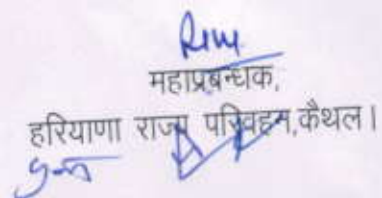 महाप्रबन्धक,
हरियाणा राज्य परिवहन,कैथल।